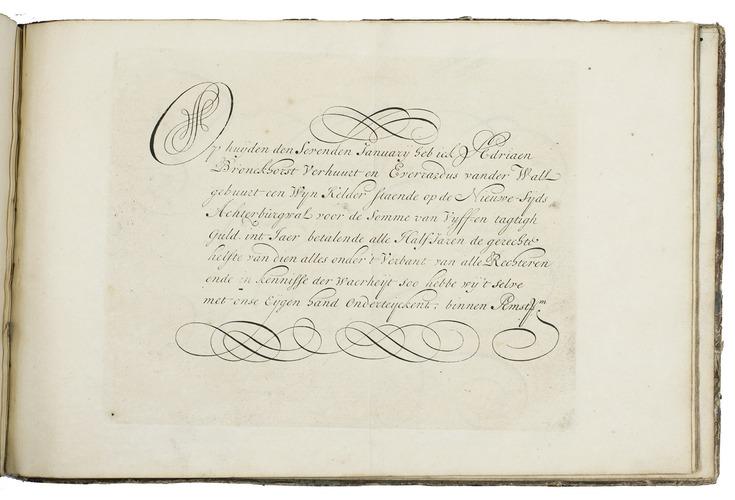 Op huyden den Sevenden January heb ick Adriaen
Bronckhorst Verhuurt en Everardus vander Wall
gehuurt een Wyn Kelder staende op de Nieuwe-Sijds
Achterburgwal voor de Somme van Vyff en tagtigh
Guld. int Jaer betalende alle Half Jaren de gerechte
helfte van dien alles onder 't Verbant van alle Rechteren
ende in kennisse der Waerheyt soo hebbe wy 't selve
met onse Eygen hand Onderteyckent; binnen Amst.m